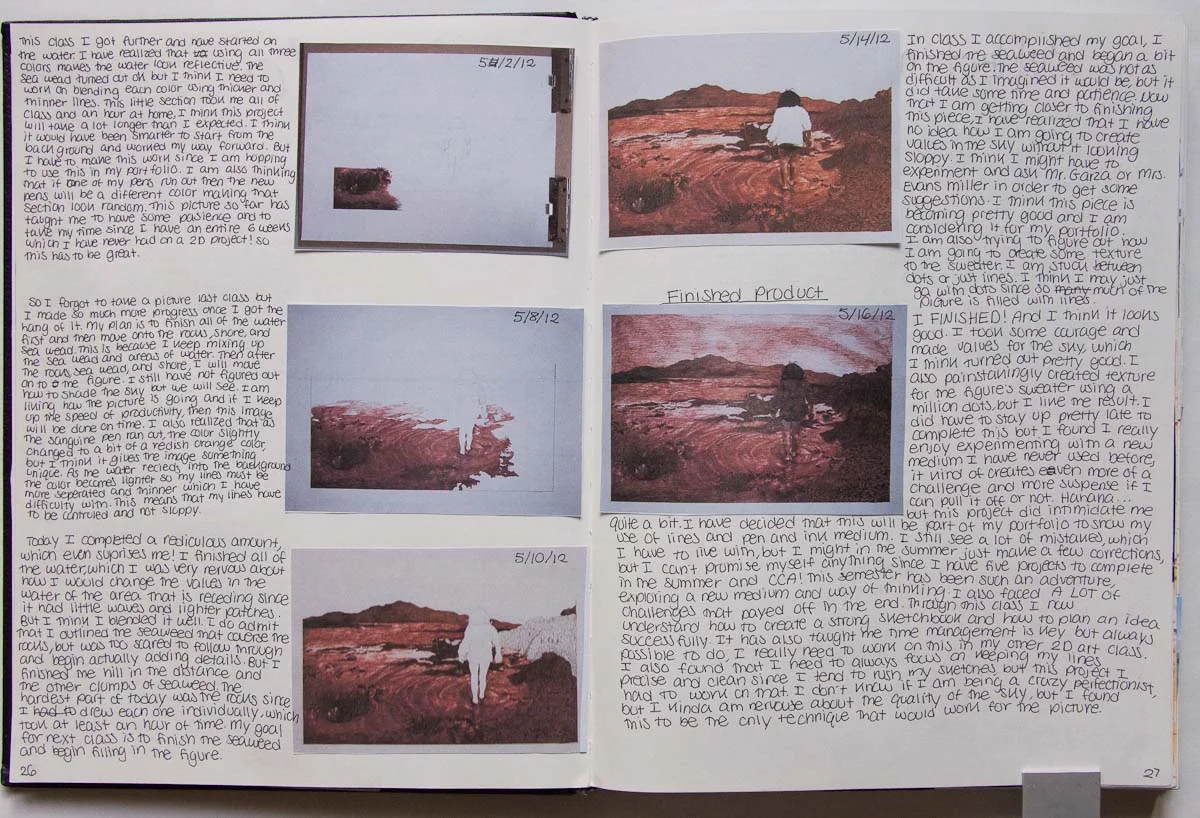 This class I got further and have started on
the water. I have realized that using all three
colors makes the water look reflective. The
sea wead turned out ok but I think I need to
work on blending each color using thicker and
thinner lines. This little section took me all of
class and an hair at home, I think this project
will take a lot longer than I expected. I think
it would have been smarter to start from the
background and worked my way forward. But
I have to make this work since I am hopping
to use this in my portfolio. I am also thinking
that if one of my pens run out then the new
pens will be a different color making that
section look random. This picture so far has
taught me to have some pasience and to
take my time since I have an entire 6 weeks
which I have never had on a 2D project! so
this has to be great.
5/2/12
So I forgot to take a picture last class but
I made so much more progress once I got the
hang of it. My plan is to finish all of the water
first and then move onto the rocks, shore, and
sea wead. This is because I keep mixing up
the sea wead and areas of water. Then after
the rocks, sea wead, and shore, I will move
on to the figure. I still have not figured out
how to shade the sky but we will see. I am
liking how the picture is going and if I keep
up the speed of productivity, then this image
will be done on time. I also realized that as
the sanguine pen ran out, the color slightly
changed to a bit of a redish orange color,
but I think it gives the image something
unique. As the water recieds into the background
the color becomes lighter so my lines must be
more seperated and thinner which I have
difficulty with. This means that my lines have
to be controled and not sloppy.
5/8/12
Today I completed a rediculous amount,
which even suprises me! I finished all of
the water, which I was very nervous about
how I would change the values in the
water of the area that is receding since
it had little waves and lighter patches.
But I think I blended it well. I do admit
that I outlined the seaweed that coverse the
rocks, but was too scared to follow through
and begin actually adding details. But I
finished the hill in the distance and
the other clumps of seaweed. The
hardest part of today was the rocks since
I had to drew each one individually, which
took at least an hair of time. My goal
for next class is to finish the seaweed
and begin filling in the figure.
5/10/12
26
5/14/12
In class I accomplished my goal, I
finished the seaweed and began a bit
on the figure. The seaweed was not as
difficult as I imagined it would be, but it
did take some time and patience. Now
that I am getting closer to finishing
this piece, I have realized that I have
no idea how I am going to create
values in the sky without it looking
sloppy. I think I might have to
experiment and ask Mr. Garza or Mrs.
Evans miller in order to get some
suggestions. I think this piece is
becoming pretty good and I am
considering it for my portfolio.
I am also trying to figure out how
I am going to create some texture
to the sweater. I am stuck between
dots or just lines. I think I may just
go with dots since so many much of the
picture is filled with lines.
Finished Product
5/16/12
I FINISHED! And I think it looks
good. I took some courage and
made values for the sky, which
I think turned out pretty good. I
also painstakingly created texture
for the figure's sweater using a
million dots, but I like the result. I
did have to stay up pretty late to
complete this but I found I really
enjoy experimenting with a new
medium I have never used before,
it kind of creates even more of a
challenge and more suspense if I
can pull it off or not. Hahaha...
but this project did intimidate me
quite a bit. I have decided that this will be part of my portfolio to show my
use of lines and pen and ink medium. I still see a lot of mistakes, which
I have to live with, but I might in the summer just make a few corrections,
but I can't promise myself anything since I have five projects to complete
in the summer and CCA! This semester has been such an adventure,
exploring a new medium and way of thinking. I also faced A LOT OF
challenges that payed off in the end. Through this class I now
understand how to create a strong sketchbook and how to plan an idea
successfully. It has also taught me time management is key but always
possible to do, I really need to work on this in my other 2D art class.
I also found that I need to always focus on keeping my lines
precise and clean since I tend to rush my sketches but this project I
had to work on that. I don't know if I am being a crazy perfectionist,
but I kinda am nervouse about the quality of the sky, but I found
this to be the only technique that would work for the picture.
27